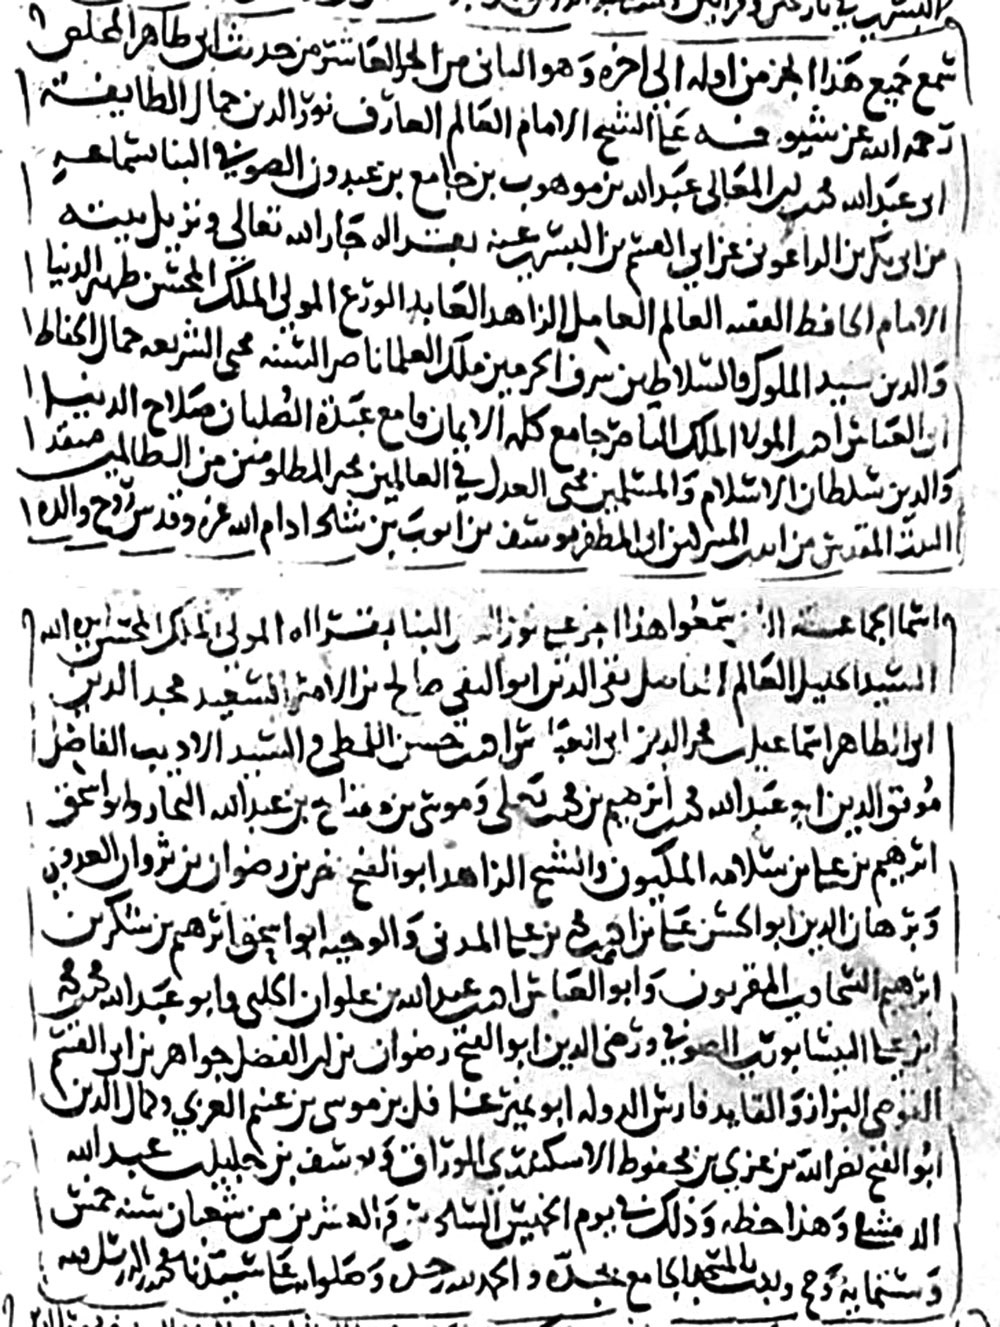 سمع جميع هذا الجزء من اوله الى اخره وهو الثاني من الجزء العاشر من حديث ابي طاهر المخلص
رحمه الله عن شيوخه على الشيخ الامام العالم العارف نور الدين جمال الطايفة
ابي عبد الله محمد بن ابي المعالي عبد الله بن موهوب بن جامع بن عبدون الصوفي البنا بسماعه
من ابي بكر بن الزاغوني عن ابي القسم بن البسري عنه بقراه جار الله تعالى ونزيل بيته
الامام الحافظ الفقيه العالم العامل الزاهد العابد الورع المولى الملك المحسن ظهير الدنيا
والدين سيد الملوك والسلاطين شرف الحرمين ملك العلما ناصر السنه محيي الشريعه جمال الحفاظ
ابي العباس احمد بن المولا الملك الناصر جامع كلمه الايمان قامع عبدة الصلبان صلاح الدنيا
والدين سلطان الاسلام والمسلمين محيي العدل في العالمين مجير المظلومين من الظالمين منقذ
البيت المقدس من ايدي المشركين ابي المظفر يوسف بن ايوب بن شاذي ادام الله عزه وقدس روح والده
اسما الجماعة الذين سمعوا هذا الجزء على نور الدين البنا بقراه المولى الملك المحسن ايده الله
السيد الجليل العالم الفاضل تقي الدين ابو التقي صالح بن الامير السعيد مجد الدين
ابي الطاهر اسماعيل فخر الدين ابي العباس احمد حسن اللمطي والسيد الاديب الفاضل
موفق الدين ابو عبد الله محمد بن ابرهيم بن محمد علي وموسى بن مفتاح بن عبد الله النجار وابو اسحق
ابرهيم بن علي بن سلامه المكيون والشيخ الزاهد ابو الفتح نصر بن رضوان بن ثروان العدوي
وبرهان الدين ابو الحسن علي بن احمد بن محمد بن علي المدني والوجيه ابو اسحق ابرهيم بن شكر بن
ابرهيم السخاوي المقريون وابو العباس احمد بن عبد الله بن علوان الحلبي وابو عبد الله محمد بن محمد
ابن علي النيسابوري الصوفي ورضي الدين ابو الفتح رضوان بن ابي الفضل جواهر بن ابي القسم
القوصي البزاز والقايد فارس الدوله ابو نمير عساقل بن موسى بن غنيم العزي وكمال الدين
ابو الفتح نصر الله بن عزي بن محفوظ الاسكندري الوراق ويوسف بن خليل بن عبد الله
الدمشقي وهذا خطه وذلك في يوم الخميس السادس والعشرين من شعبان سنه خمس
وستمايه وصح وثبت بالمسجد الجامع بجدة والحمد لله وحده وصلواته على سيدنا محمد واله وسلامه